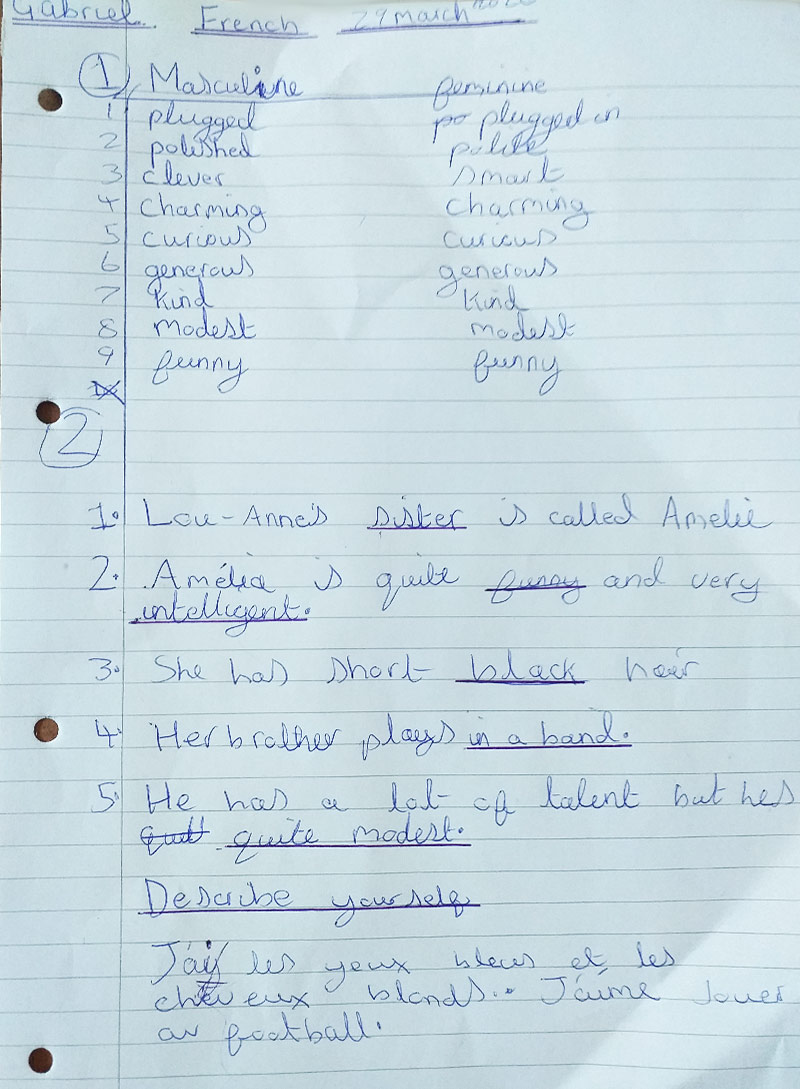 Gabriel French 29 march
1 Masculine feminine
1 plugged plugged in
2 polished polite
3 clever smart
4 charming charming
5 curious curious
6 generous generous
7 kind kind
8 modest modest
9 funny funny
2
1. Lou-Anne's sister is called Amelie
2. Amélie is quite funny and very
intelligent.
3. She has short black hair
4. Her brother plays in a band.
5. He has a lot of talent but hes
quite modest.
Describe yourself
J'ai les yeux bleus et les
cheveux blonds. J'aime Jouer
au football.